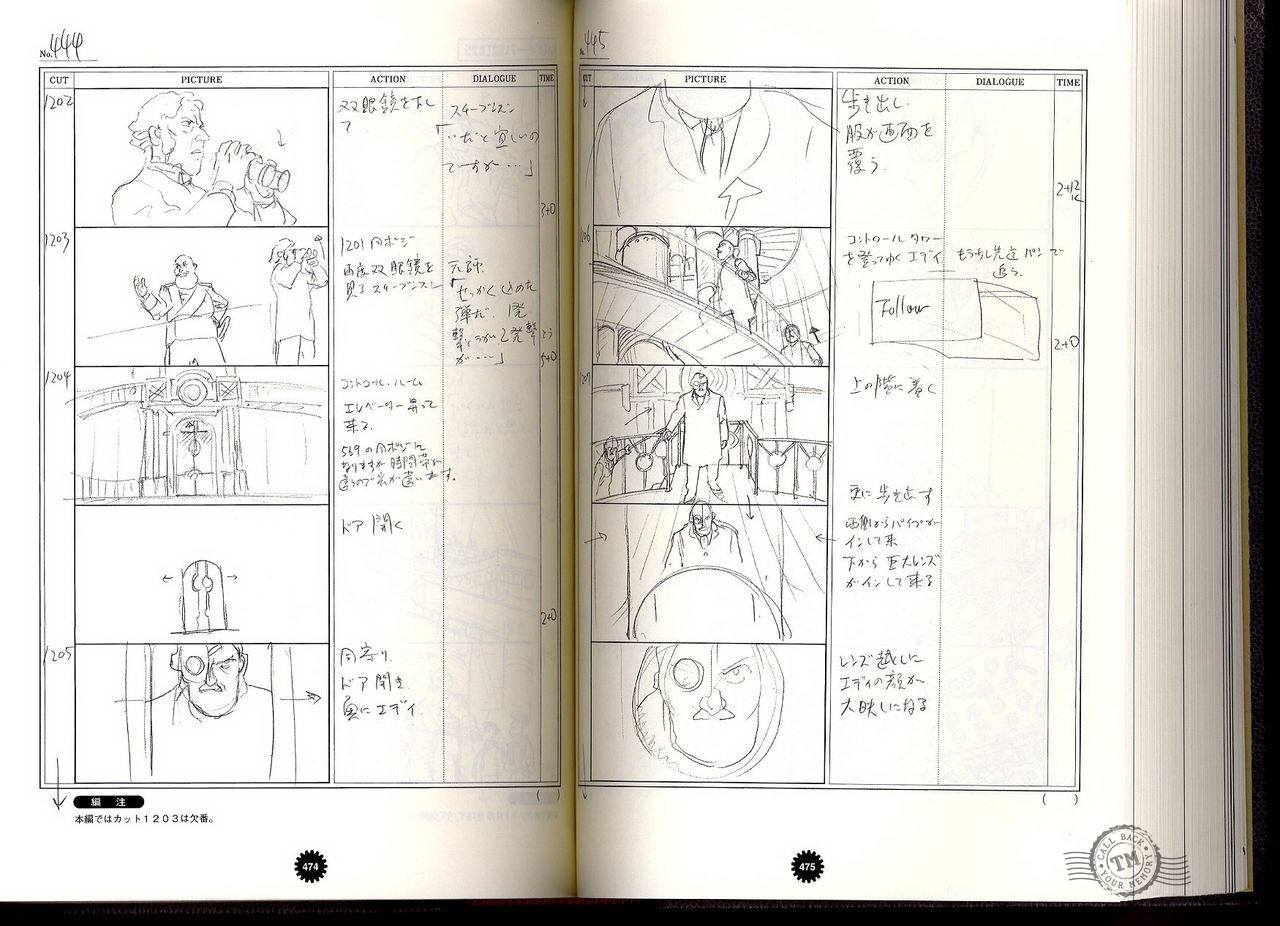 No.444
CUT PICTURE ACTION DIALOGUE TIME
1202
双眼鏡を下し
て
スチーブンスン
3+0
1203
1201同ポジ
再度双眼鏡を
見るスチーブンスン
元帥
「せっかく込めた
弾だ. 1発
撃とうが2発撃
が…」
5+0
1204
コントロール・ルーム
エレベーター昇って
来る.
569の同ポジに
なりますが時間帯が
違うので
ドア開く
2+0
1205
同寄り.
ドア開き.
奥にエディ.
編 注
本編ではカット1203は欠番。
474
445
CUT PICTURE ACTION DIALOGUE TIME
歩き出し.
服が画面を
覆う.
2+12
コントロールタワー
を登ってゆくエディ.
もう少し先迄パンで
追う.
Follow
2+0
上の階に着く
更に歩き出す
両側からパイプが
インして来
下から巨大レンズ
がインして来る
レンズ越しに
エディの顔が
大映しになる
475
CALL BACK
TM
YOUR MEMORY